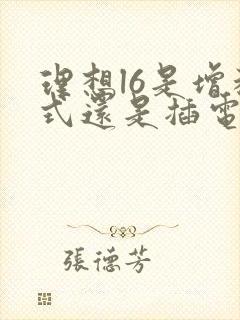 理想l6是增程
式還是插電
張德芳